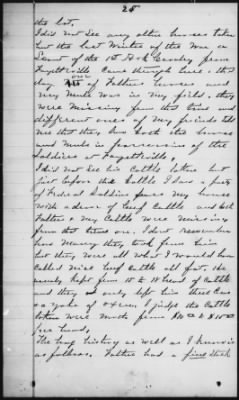 25
the lot.
I did not see any other horses taken
but the last Winter of the War a
Scout of the 1st Ala Cavalry from
Fayetteville Came through here. that
day one of Fathers horses and
my Mule was in my field. they
were Missing from this time and
different ones of my friends told
me that they saw both the horse
and Mule in possession of the
Soldiers at Fayetteville,
I did not see his Cattle taken but
just before that Battle I saw a party
of Federal Soldiers pass my house
with a drove of beef Cattle and both
Fathers & My Cattle were missing
from that time on. I dont remember
how Many they took from him
but they were all what I would have
Called Nice beef Cattle all fat. He
usually kept from 10 to 12 head of Cattle
and they only left him three Cows
a yoke of oxen, I judge the Cattle
taken were worth from to
per head,
The hog history as well as I know is
as follows. Father had a fine stock